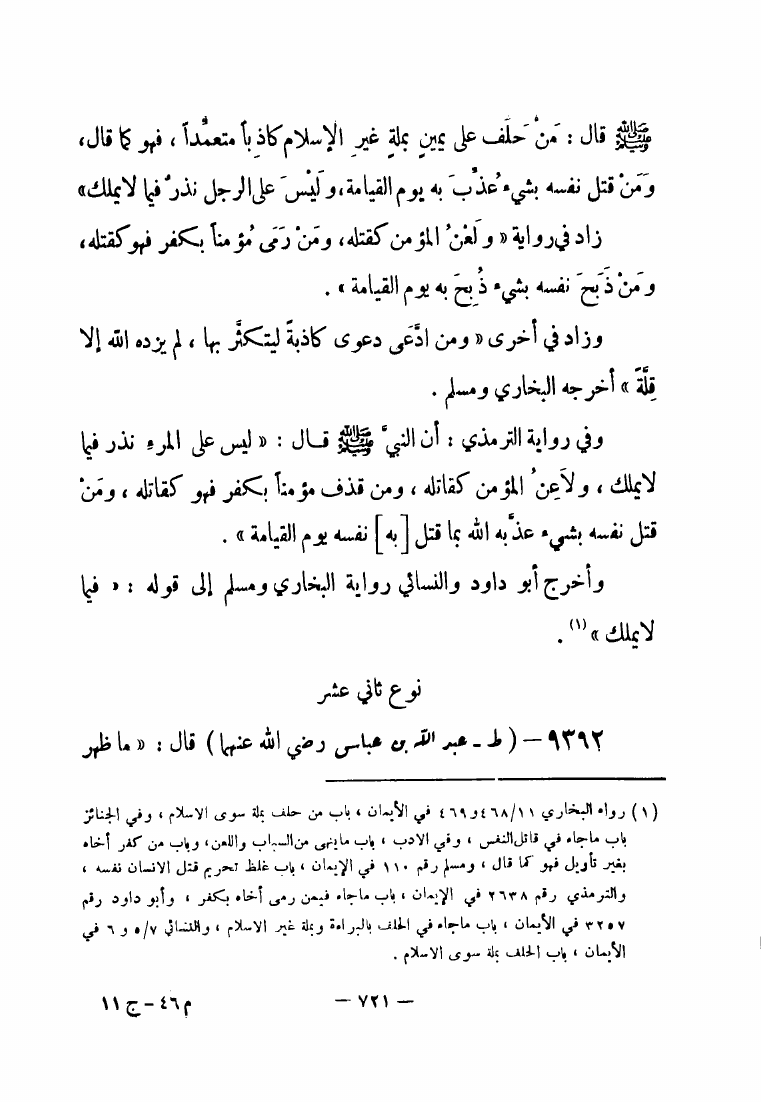 ﷺ قال : مَنْ حلَف على يمينٍ بملةٍ غيرِ الإسلام كاذِباً متعمِّداً ، فهو كما قال،
ومَنْ قتل نفسه بشيء عُذِّبَ به يوم القيامة، ولَيْسَ على الرجل نذرٌ فيما لايملك»
زاد في رواية « ولَعْنُ المؤمن كقتله، ومَنْ رَمَى مُؤمناً بكفر فهو كقتله،
ومَنْ ذَبَحَ نفسه بشيء ذُبِحَ به يوم القيامة » .
وزاد في أخرى « ومن ادَّعَى دعوى كاذبةً ليتكثَّر بها ، لم يزده الله إلا
قِلَّةً » أخرجه البخاري ومسلم .
وفي رواية الترمذي : أن النبيَّ ﷺ قال : « ليس على المرءِ نذر فيما
لايملك ، ولاَعِنُ المؤمن كقاتله ، ومن قذف مؤمناً بكفر فهو كقاتله ، ومَنْ
قتل نفسه بشيء عذَّبه الله بما قتل [به] نفسه يوم القيامة » .
وأخرج أبو داود والنسائي رواية البخاري ومسلم إلى قوله : « فيما
لايملك » (١) .
نوع ثاني عشر
٩٣٩٢ – ( ط - عبد الله بن عباس رضي الله عنهما ) قال : « ما ظهر
(١) رواه البخاري ٤٦٨/١١ و٤٦٩ في الأيمان ، باب من حلف بملة سوى الاسلام ، وفي الجنائز
باب ماجاء في قاتل النفس ، وفي الادب ، باب ماينهى من السباب واللعن، وباب من كفر أخاه
بغير تأويل فهو كما قال ، ومسلم رقم ١١٠ في الإيمان ، باب غلظ تحريم قتل الانسان نفسه ،
والترمذي رقم ٢٦٣٨ في الإيمان ، باب ماجاء فيمن رمى أخاه بكفر ، وأبو داود رقم
٣٢٥٧ في الأيمان ، باب ماجاء في الحلف بالبراءة وبملة غير الاسلام ، والنسائي ٥/٧ و ٦ في
الأيمان ، باب الحلف بملة سوى الاسلام .
– ٧٢١ –
م ٤٦ – ج ١١